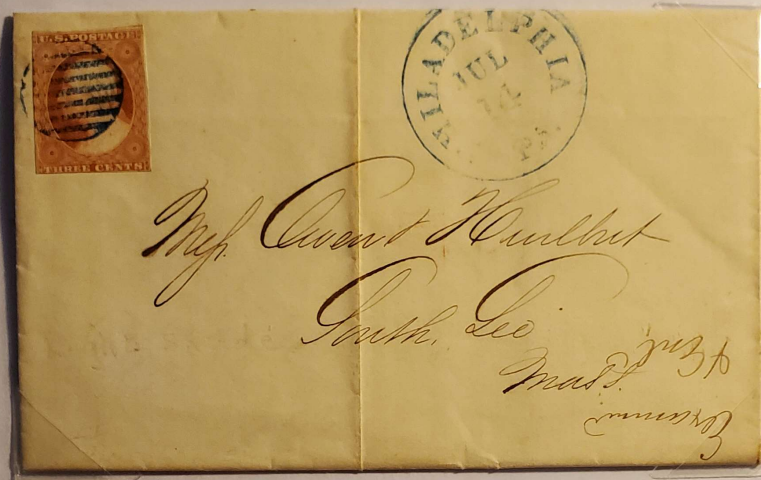 U.S. POSTAGE
THREE CENTS
PHILADELPHIA
JUL
14
Pa.
Mess. Owen & Hurlbut
South. Lee
Mass.
Examined
& Ent.